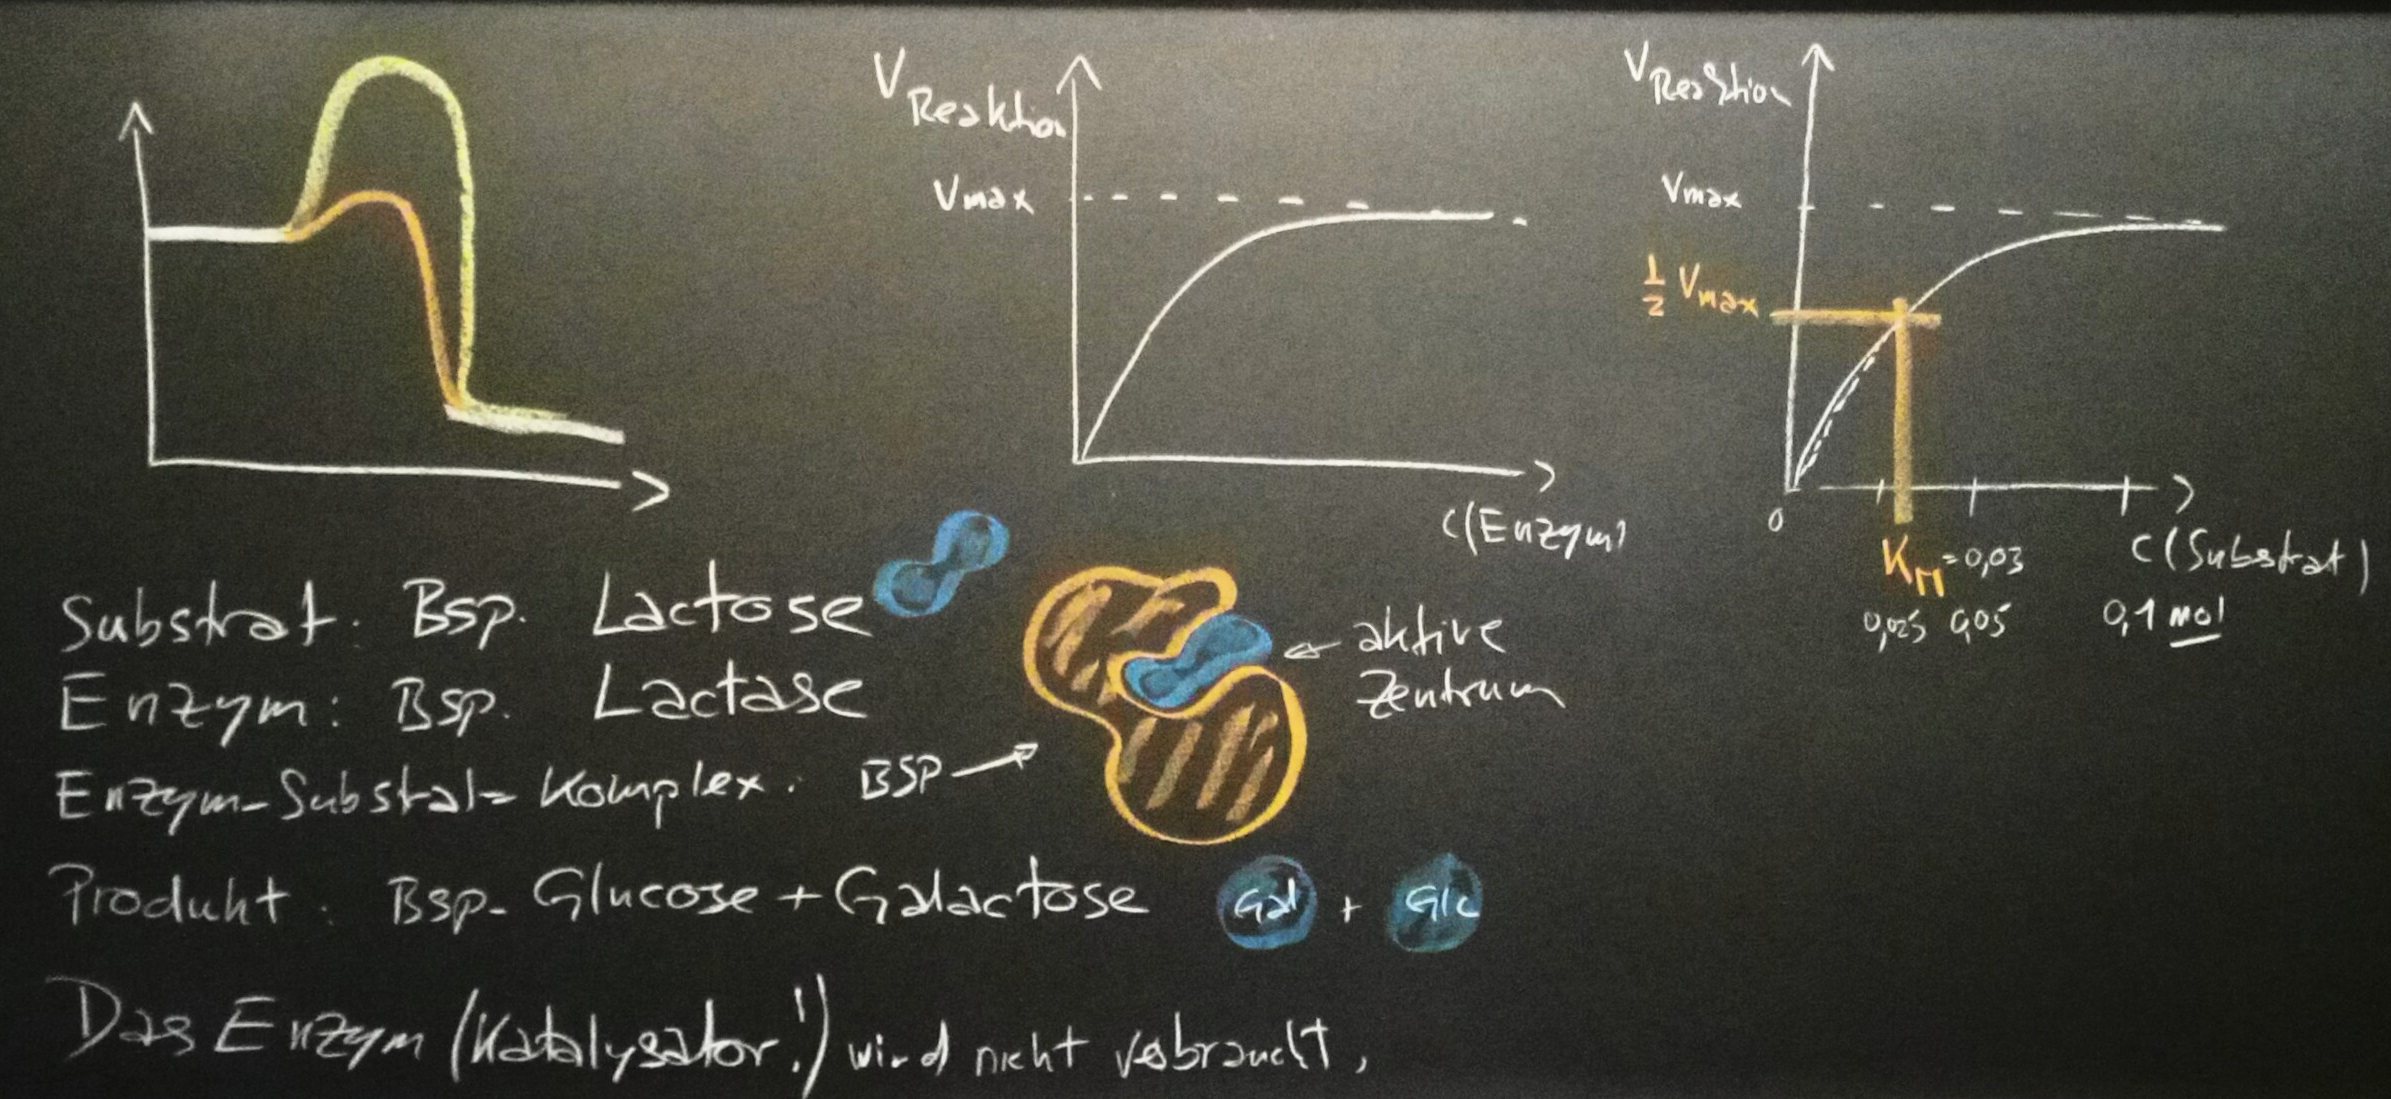 V Reaktion
Vmax
C(Enzym)
V Reaktion
Vmax
1/2 Vmax
0
KM = 0,03
C(Substrat)
0,025 0,05 0,1 mol
Substrat: Bsp. Lactose
Enzym: Bsp. Lactase
aktive
Zentrum
Enzym-Substrat-Komplex: BSP
Produkt: Bsp. Glucose + Galactose Gal + Glc
Das Enzym (Katalysator!) wird nicht verbraucht.